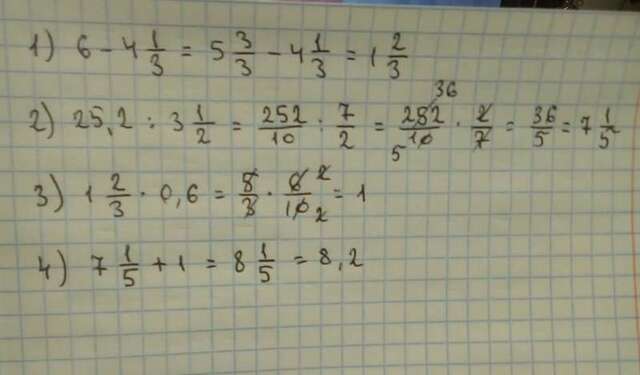 1) 6 - 4 1/3 = 5 3/3 - 4 1/3 = 1 2/3
2) 25,2 : 3 1/2 = 252/10 : 7/2 = 252/10 36 5 · 2/7 = 36/5 = 7 1/5
3) 1 2/3 · 0,6 = 5/3 · 6/10 2 2 = 1
4) 7 1/5 + 1 = 8 1/5 = 8,2